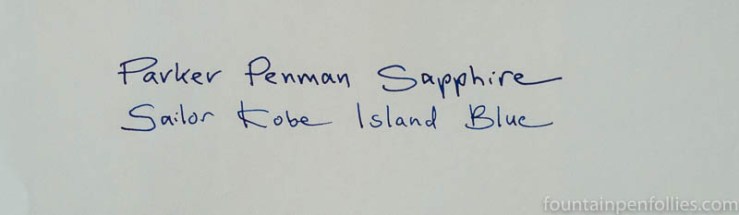 Parker Penman Sapphire
Sailor Kobe Island Blue
fountainpenfollies.com